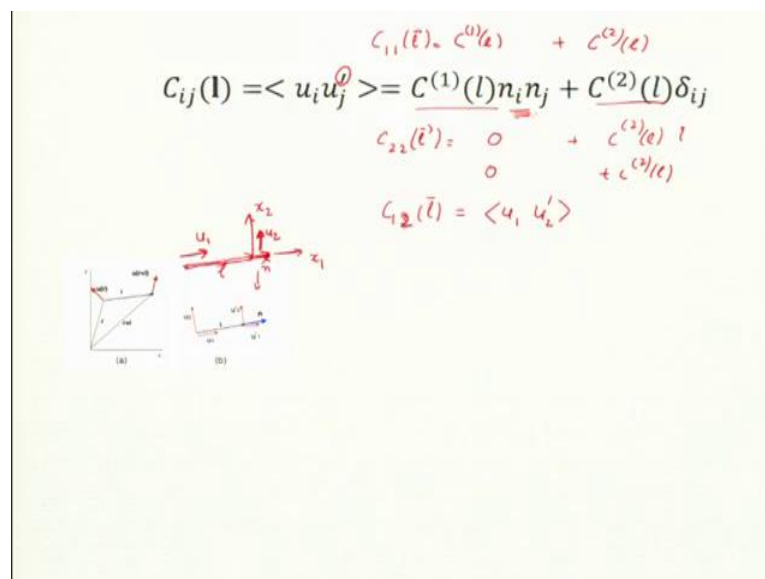 C₁₁(l̄) = C⁽¹⁾(l) + C⁽²⁾(l)
Cᵢⱼ(l) =< uᵢu′ⱼ >= C⁽¹⁾(l)nᵢnⱼ + C⁽²⁾(l)δᵢⱼ
C₂₂(l̄) = 0 + C⁽²⁾(l)
0 + C⁽²⁾(l)
C₁₂(l̄) = <u₁ u₂′>
x₂
u₁ u₂
l n x₁
(a) (b)